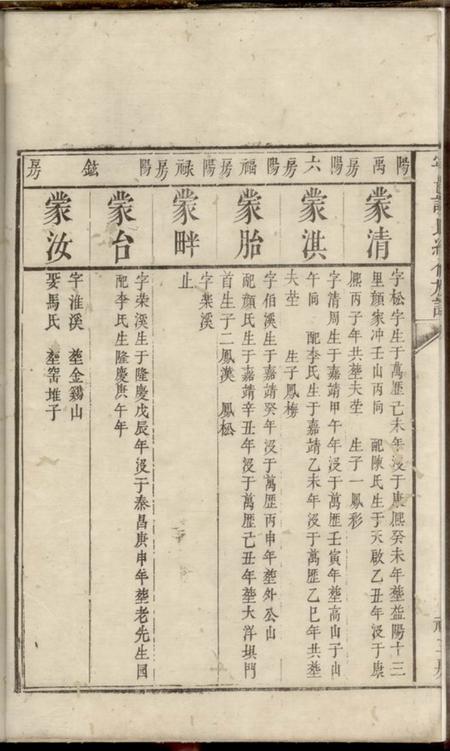 陽禹房
蒙清
字松字生于萬歷己未年沒于康熙癸未年塟益陽十三
里顔家冲壬山丙向　配陳氏生于天啟乙丑年沒于康
熙丙子年共塟夫塋　生子一鳳彩
陽六房
蒙淇
字清周生于嘉靖甲午年沒于萬歷壬寅年塟高山子山
午向　配李氏生于嘉靖乙未年沒于萬歷乙巳年共塟
夫塋　生子鳳梅
陽福房
蒙胎
字伯溪生于嘉靖癸年沒于萬歷丙申年塟外公山
配顔氏生于嘉靖辛丑年沒于萬歷己丑年塟大洋垻門
首生子二鳳漢　鳳松
陽祿房
蒙畔
字樂溪
止
陽鉉房
蒙台
字榮溪生于隆慶戊辰年沒于泰昌庚申年塟老先生園
配李氏生隆慶庚午年
蒙汝
字淮溪　塟金鷄山
娶馬氏　塟窑堆子